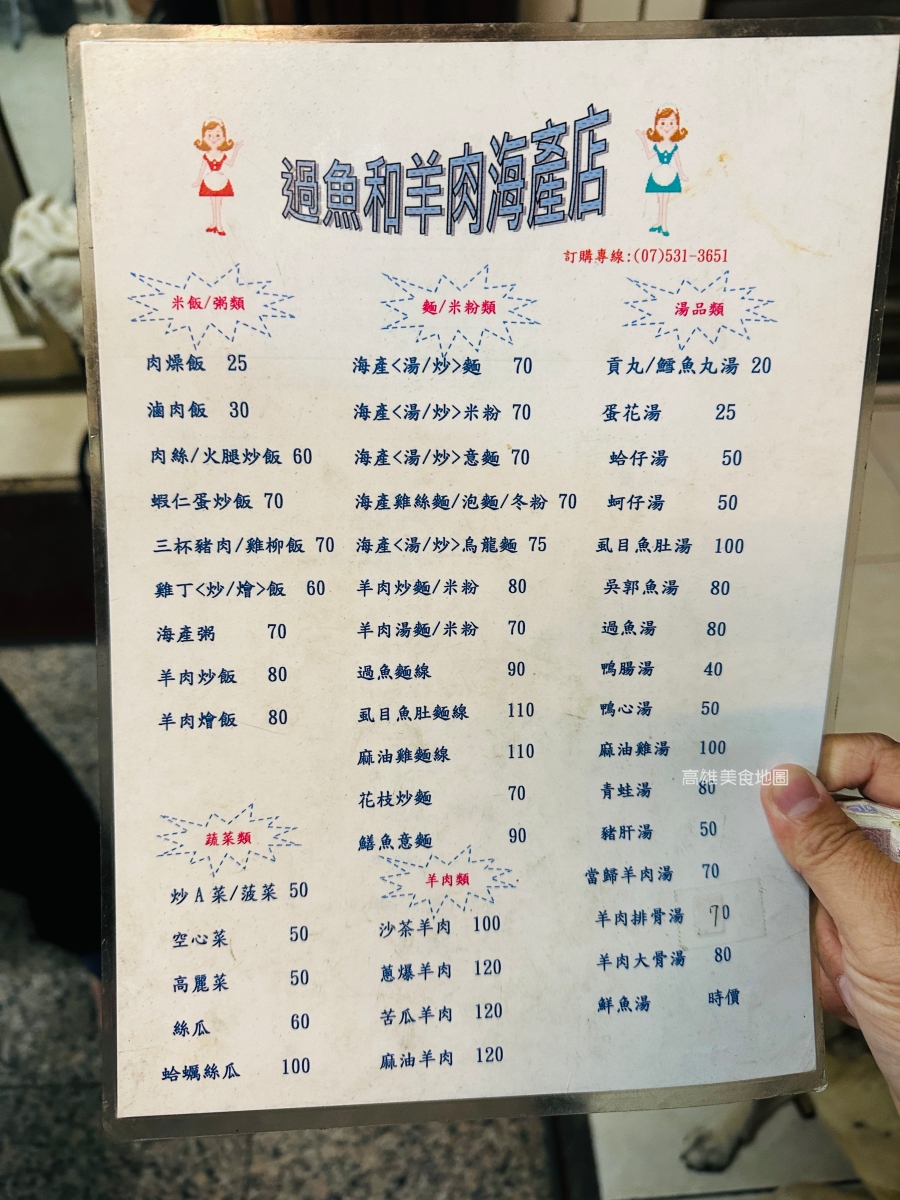 過魚和羊肉海產店
訂購專線:(07)531-3651
米飯/粥類
肉燥飯 25
滷肉飯 30
肉絲/火腿炒飯 60
蝦仁蛋炒飯 70
三杯豬肉/雞柳飯 70
雞丁<炒/燴>飯 60
海產粥 70
羊肉炒飯 80
羊肉燴飯 80
蔬菜類
炒A菜/菠菜 50
空心菜 50
高麗菜 50
絲瓜 60
蛤蠣絲瓜 100
麵/米粉類
海產<湯/炒>麵 70
海產<湯/炒>米粉 70
海產<湯/炒>意麵 70
海產雞絲麵/泡麵/冬粉 70
海產<湯/炒>烏龍麵 75
羊肉炒麵/米粉 80
羊肉湯麵/米粉 70
過魚麵線 90
虱目魚肚麵線 110
麻油雞麵線 110
花枝炒麵 70
鱔魚意麵 90
羊肉類
沙茶羊肉 100
蔥爆羊肉 120
苦瓜羊肉 120
麻油羊肉 120
湯品類
貢丸/鱈魚丸湯 20
蛋花湯 25
蛤仔湯 50
蚵仔湯 50
虱目魚肚湯 100
吳郭魚湯 80
過魚湯 80
鴨腸湯 40
鴨心湯 50
麻油雞湯 100
青蛙湯 80
豬肝湯 50
當歸羊肉湯 70
羊肉排骨湯 70
羊肉大骨湯 80
鮮魚湯 時價
高雄美食地圖